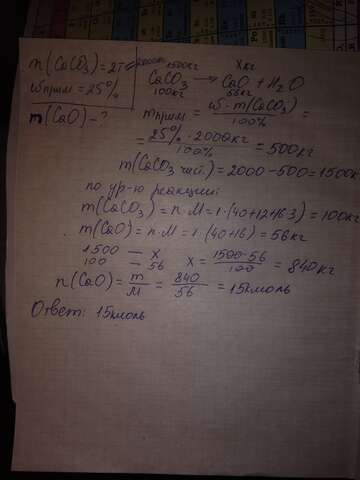 m(CaCO3)=2т=2000кг
wприм=25%
m(CaO)-?
1500кг xкг
CaCO3 → CaO + H2O
100кг 56кг
mприм = w·m(CaCO3)/100% =
= 25%·2000кг/100% = 500кг
m(CaCO3 чист.)=2000-500=1500кг
по ур-ю реакции:
m(CaCO3)=n·M=1·(40+12+16·3)=100кг
m(CaO)=n·M=1·(40+16)=56кг
1500 — x
100 — 56
x = 1500·56/100 = 840кг
n(CaO)= m/M = 840/56 = 15кмоль
Ответ: 15кмоль